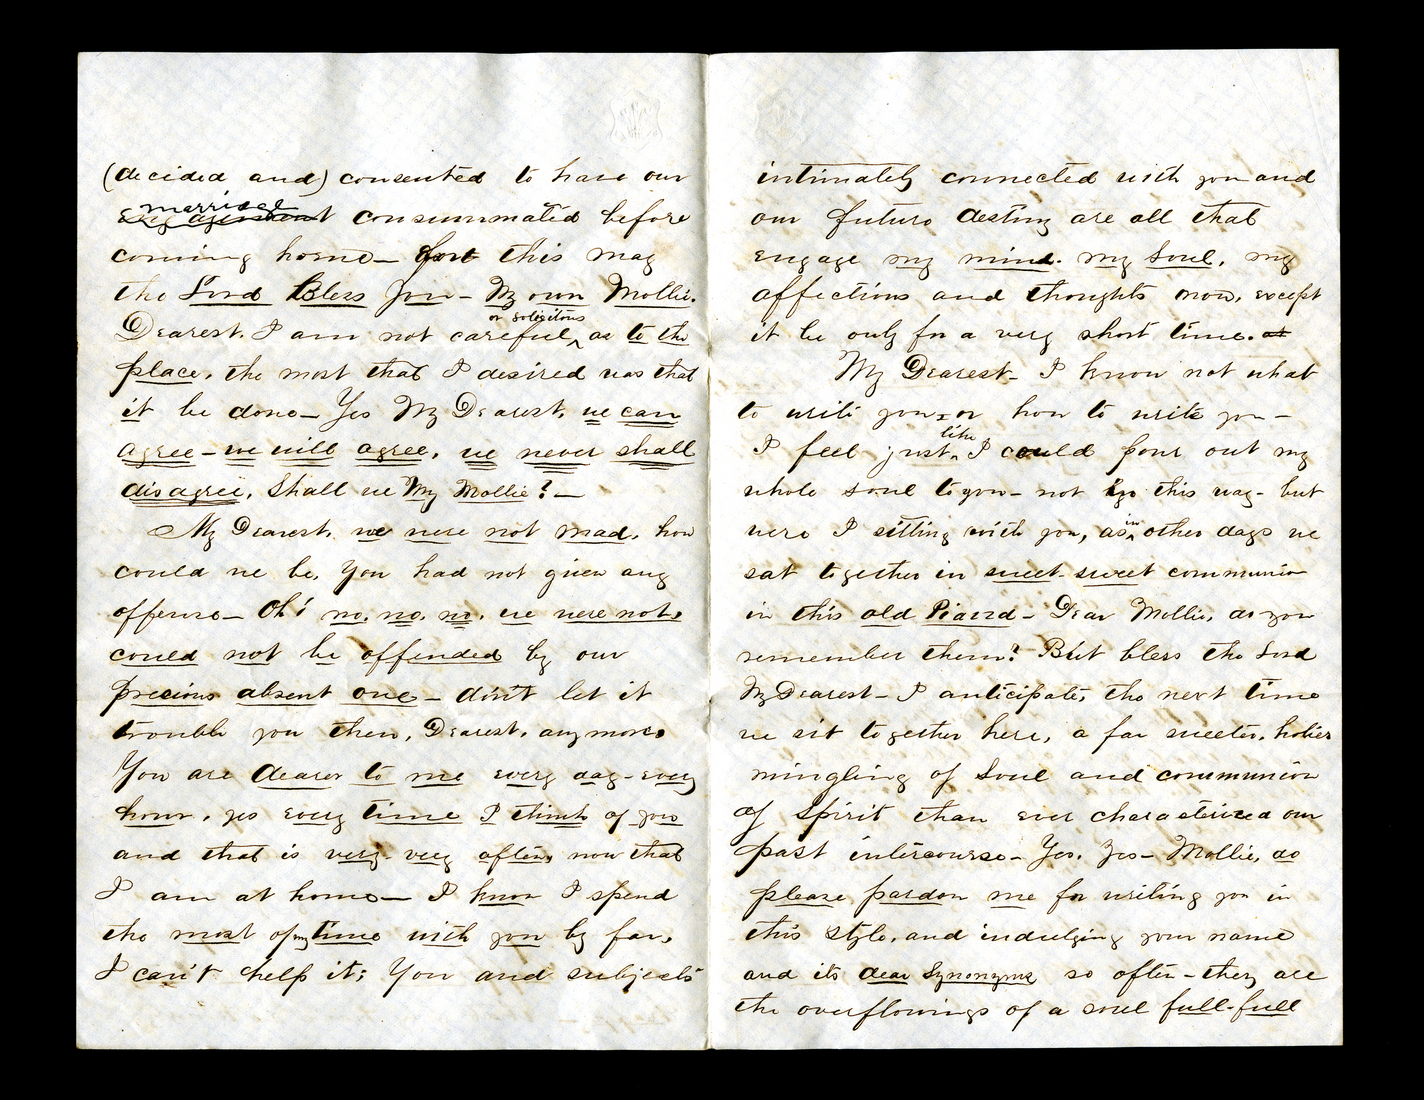 (decided and) consented to have our
marriage
consummated before
coming home— for this may
the Lord Bless you— My own Mollie.
or solicitous
Dearest. I am not careful, as to the
place, the most that I desired was that
it be done— Yes My Dearest, we can
agree— we will agree, we never shall
disagree, Shall we My Mollie?—
My Dearest, we were not mad, how
could we be, You had not given any
offense— Oh! no, no, no, we were not,
could not be offended by our
precious absent one— don't let it
trouble you then, Dearest, any more,
You are dearer to me every day— every
hour, yes every time I think of you
and that is very— very often, now that
I am at home— I know I spend
the most of my time with you by far,
I can't help it; You and subjects
intimately connected with you and
our future destiny are all that
engage my mind. my Soul, my
affections and thoughts now, except
it be only for a very short time. at
My Dearest— I know not what
to write you— or how to write you—
like
I feel just, I could pour out my
whole soul to you— not in this way— but
were I sitting with you, as in other days we
sat together in sweet—sweet communion
in this old Piazza— Dear Mollie, do you
remember them? But bless the Lord
My Dearest— I anticipate, the next time
we sit together here, a far sweeter, holier
mingling of Soul and communion
of Spirit than ever characterized our
past intercourse— Yes, Yes— Mollie, do
please pardon me for writing you in
this style, and indulging your name
and its dear Synonyms so often— they are
the overflowings of a soul full—full